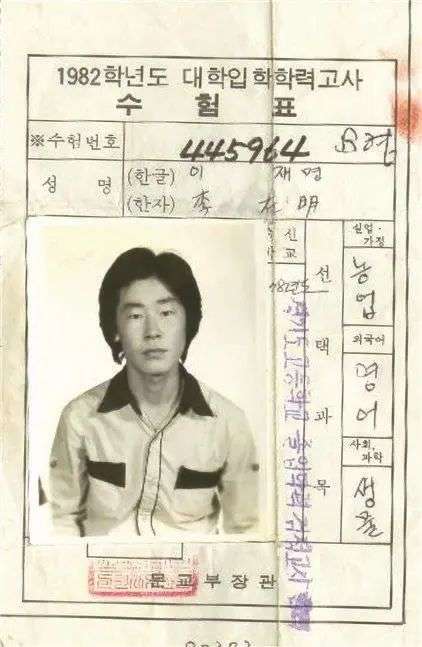 1982학년도 대학입학학력고사
수험표
※수험번호 445964
성명 (한글) 이 재명
(한자) 李 在 明
선택과목
실업·가정 농업
외국어 영어
사회,과학 생물
문교부장관